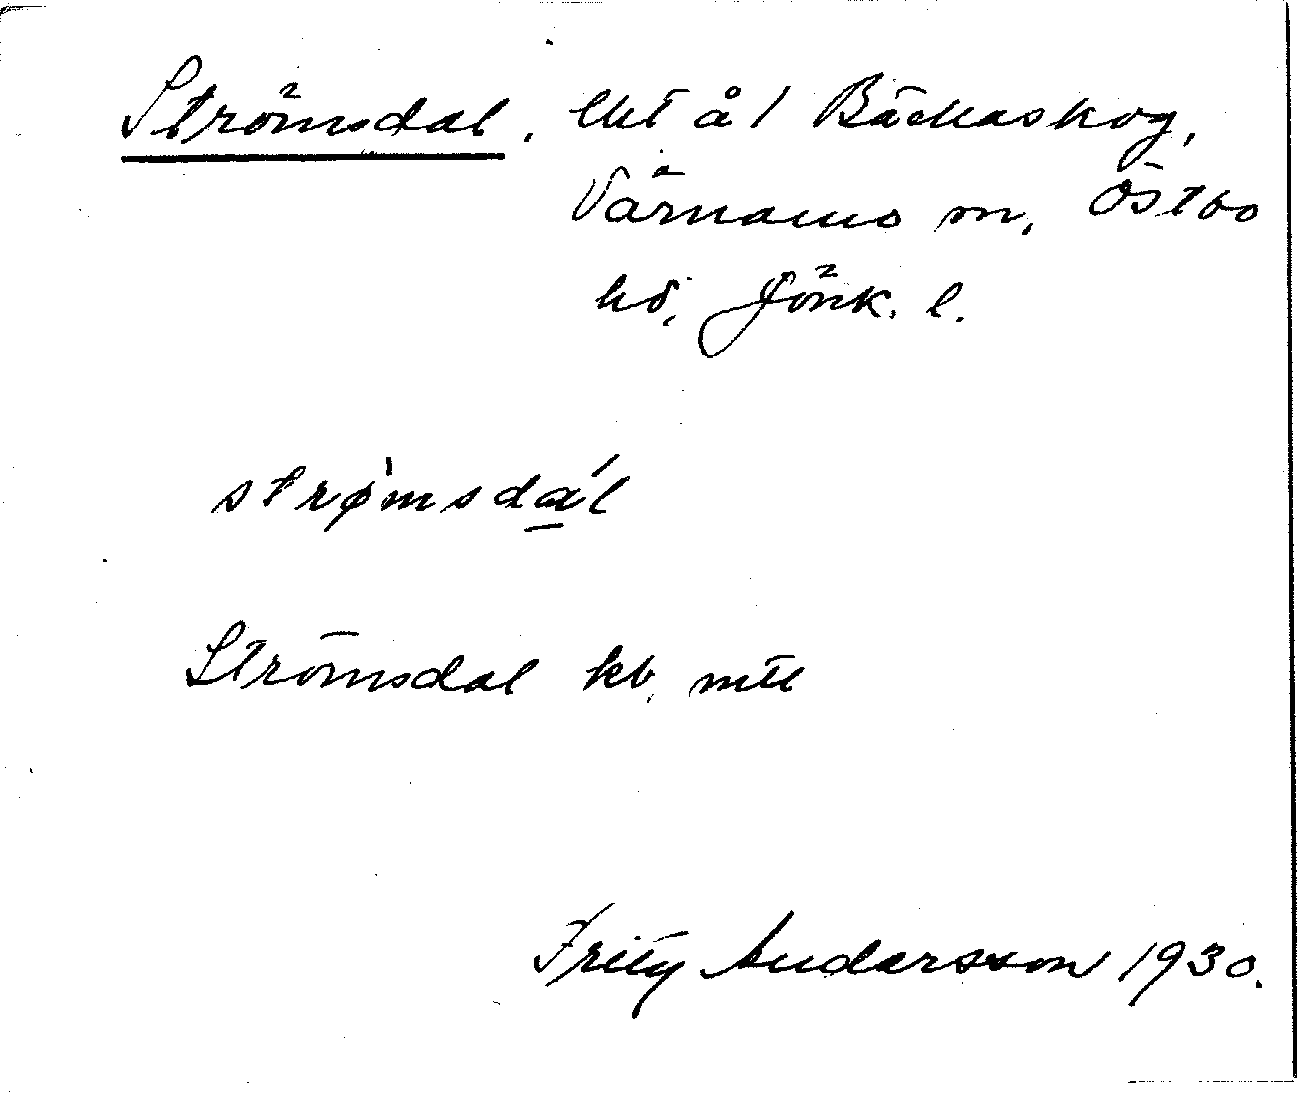 Strömsdal, lht å 1 Bäckaskog,
Värnamo m, Östbo
hd, Jönk. l.
strømsdal
Strömsdal kb, mtl
Fritz Andersson 1930.